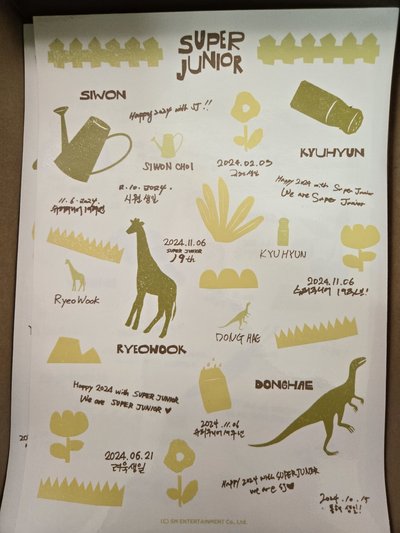 SUPER
JUNIOR
SIWON
Happy 2024 with SJ!!
SIWON CHOI
2024.02.03
규현생일
KYUHYUN
Happy 2024 with Super Junior
We are Super Junior
11.6.2024.
슈퍼주니어 19주년
2.10.2024.
시원 생일
2024.11.06
SUPER JUNIOR
19th
KYUHYUN
2024.11.06
슈퍼주니어 19주년!
RyeoWook
RYEOWOOK
DONGHAE
DONGHAE
Happy 2024 with SUPER JUNIOR
We are SUPER JUNIOR ♥
2024.11.06
슈퍼주니어 19주년
2024.06.21
려욱생일
Happy 2024 with SUPER JUNIOR
we are SJ ♥
2024.10.15
동해 생일!
(C) SM ENTERTAINMENT Co., Ltd.